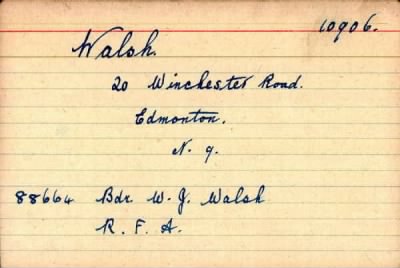 10906.
Walsh.
20 Winchester Road.
Edmonton.
N. 9.
88664 Bdr. W. J. Walsh
R. F. A.